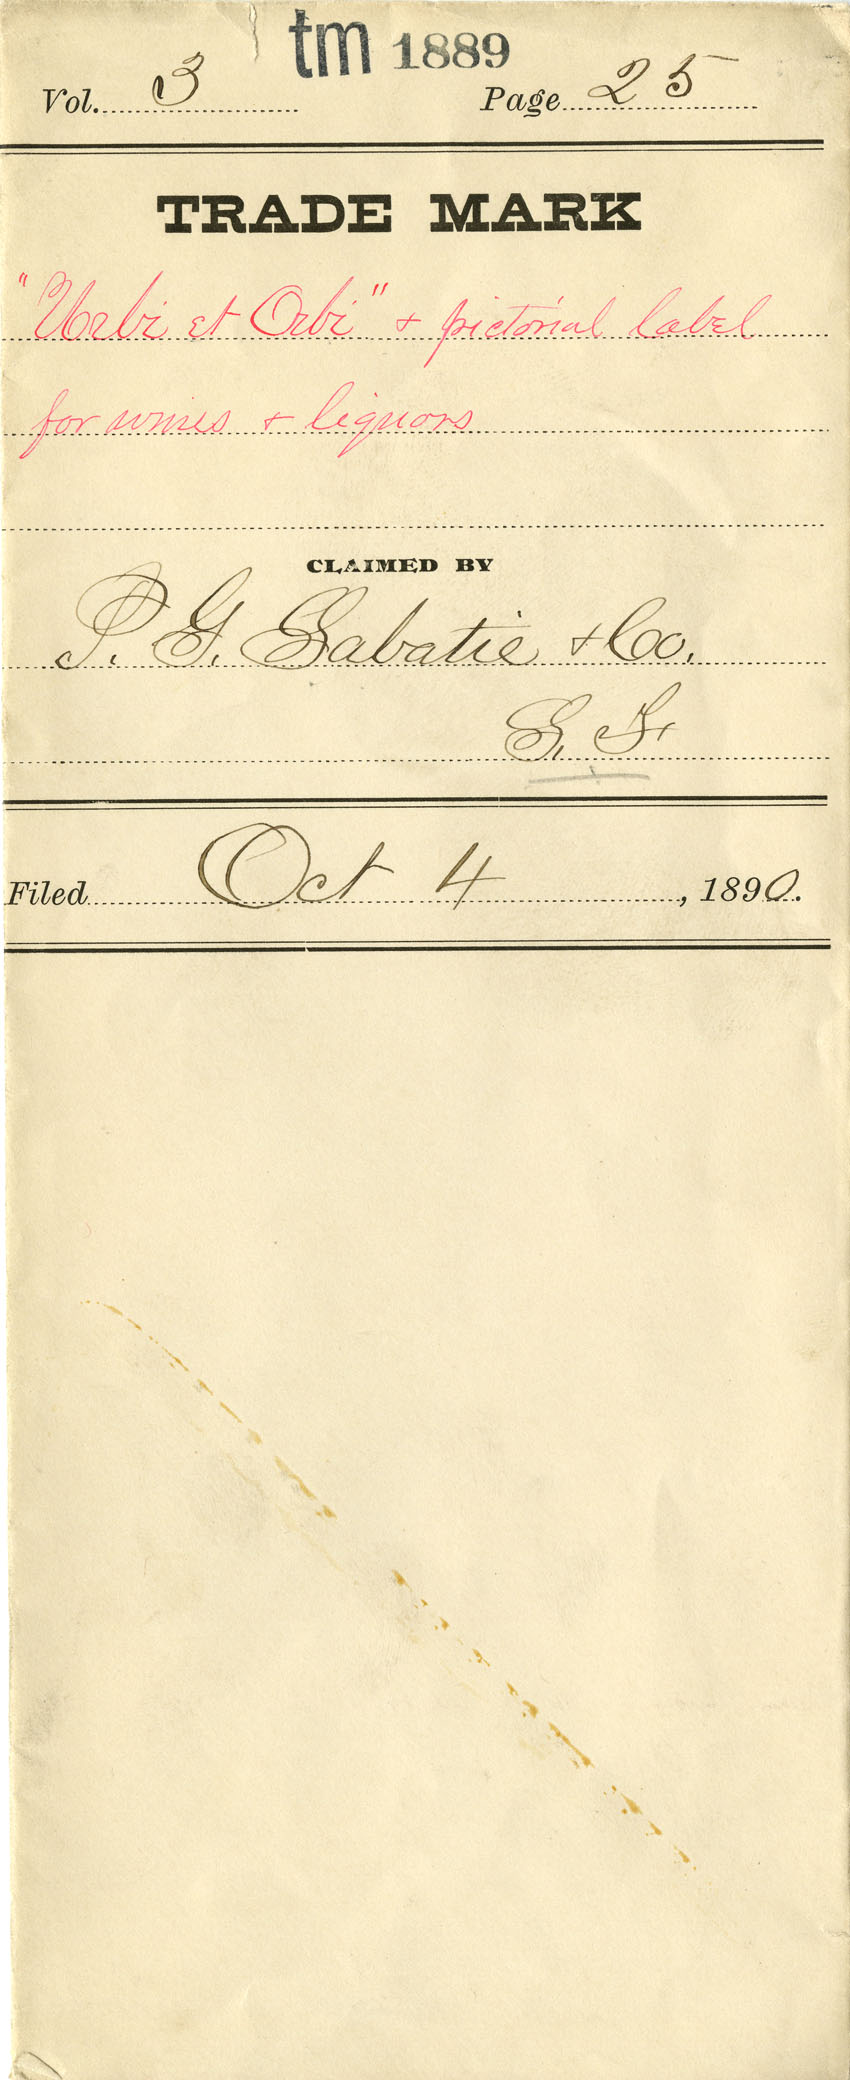 tm 1889
Vol. 3 Page 25
TRADE MARK
"Urbi et Orbi" + pictorial label
for wines + liquors
CLAIMED BY
P. G. Sabatie + Co.
S. F.
Filed Oct 4, 1890.